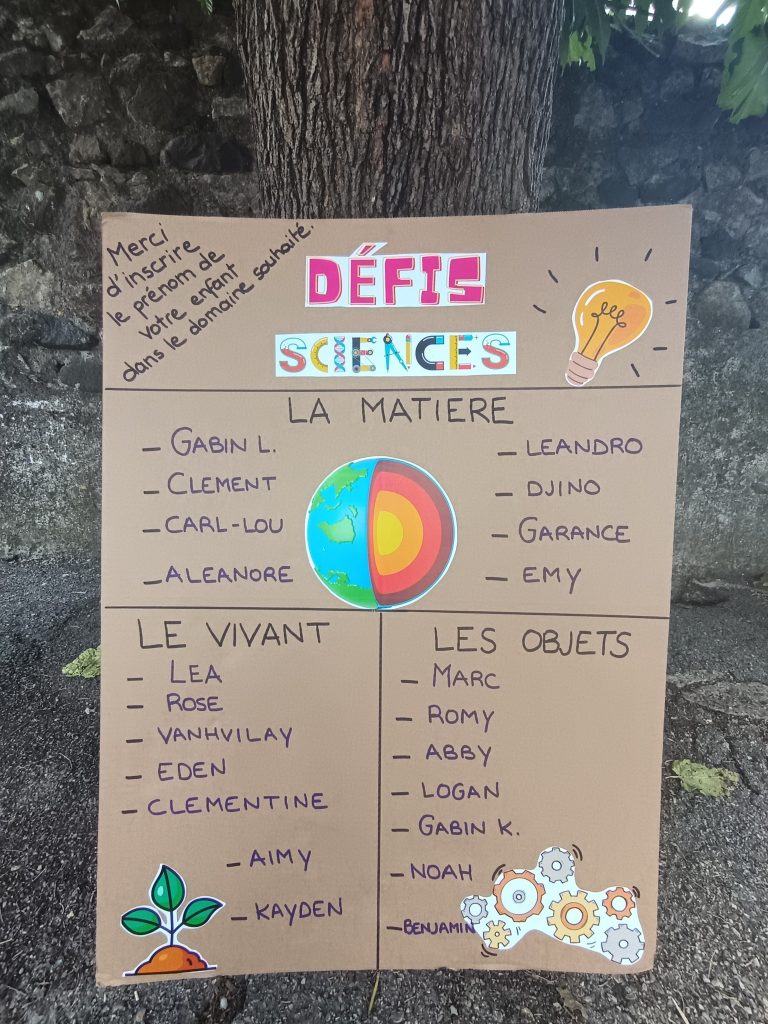 Merci
d'inscrire
le prénom de
votre enfant
dans le domaine souhaité.
DÉFIS
SCIENCES
LA MATIERE
- GABIN L.
- CLEMENT
- CARL-LOU
- ALEANORE
- LEANDRO
- DJINO
- GARANCE
- EMY
LE VIVANT
- LEA
- ROSE
- VANHVILAY
- EDEN
- CLEMENTINE
- AIMY
- KAYDEN
LES OBJETS
- MARC
- ROMY
- ABBY
- LOGAN
- GABIN K.
- NOAH
- BENJAMIN